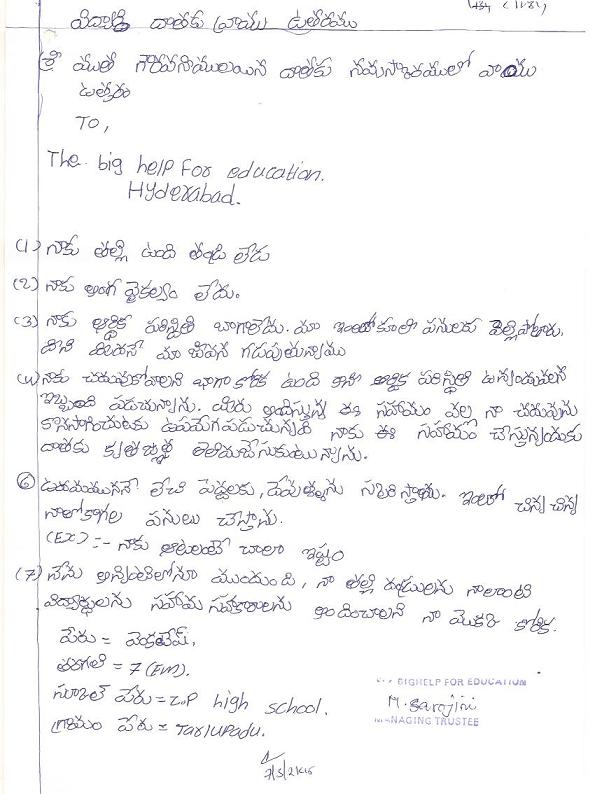 విద్యార్థి దాతకు వ్రాయు ఉత్తరము
శ్రీ యుత గౌరవనీయులయిన దాతకు నమస్కారములో వ్రాయు
ఉత్తరం
TO,
The big help For education.
HYderabad.
(1) నాకు తల్లి ఉంది తండ్రి లేడు
(2) నాకు అంగ వైకల్యం లేదు.
(3) నాకు ఆర్థిక పరిస్థితి బాగాలేదు. మా ఇంట్లో కూలి పనులకు వెల్లిపోతారు.
దాని మీదనే మా జీవన గడుపుతున్నాము
(4) నాకు చదువుకోవాలని బాగా కోరిక ఉంది కానీ ఆర్థిక పరిస్థితి ఉన్నందువలన
ఇబ్బంది పడుచున్నాను. మీరు అందిస్తున్న ఈ సహాయం వల్ల నా చదువును
కొనసాగించుటకు ఉపయోగపడుచున్నది నాకు ఈ సహాయం చేస్తున్నందుకు
దాతకు కృతజ్ఞత తెలియచేసుకుంటున్నాను.
6 ఉదయముననే లేచి పెద్దలకు, దేవుళ్ళను స్మరిస్తాను. ఇంట్లో చిన్న చిన్న
నాలోకాగల పనులు చేస్తాను.
(Ex) :- నాకు ఆటలంటే చాలా ఇష్టం
(7) నేను అన్నింటిలోనూ ముందుండి, నా తల్లి దండ్రులను నాలాంటి
విద్యార్థులను సహాయ సహకారాలను అందించాలని నా యొక్క కోరిక.
పేరు = వెంకటేష్,
తరగతి = 7 (EM).
స్కూల్ పేరు = Z.P high school.
గ్రామం పేరు = Tarlupadu.
BIGHELP FOR EDUCATION
M. Sarojini
MANAGING TRUSTEE